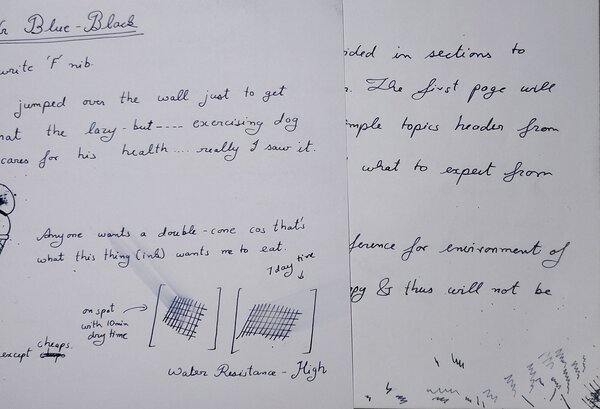 Blue-Black
write 'F' nib.
jumped over the wall just to get
the lazy-but---- exercising dog
cares for his health .... really I saw it.
Anyone wants a double-cone cos that's
what this thing (ink) wants me to eat.
1 day time
on spot
with 10min
dry time
cheaps.
except
Water Resistance - High
in sections to
The first page will
topics header from
what to expect from
for environment of
& thus will not be